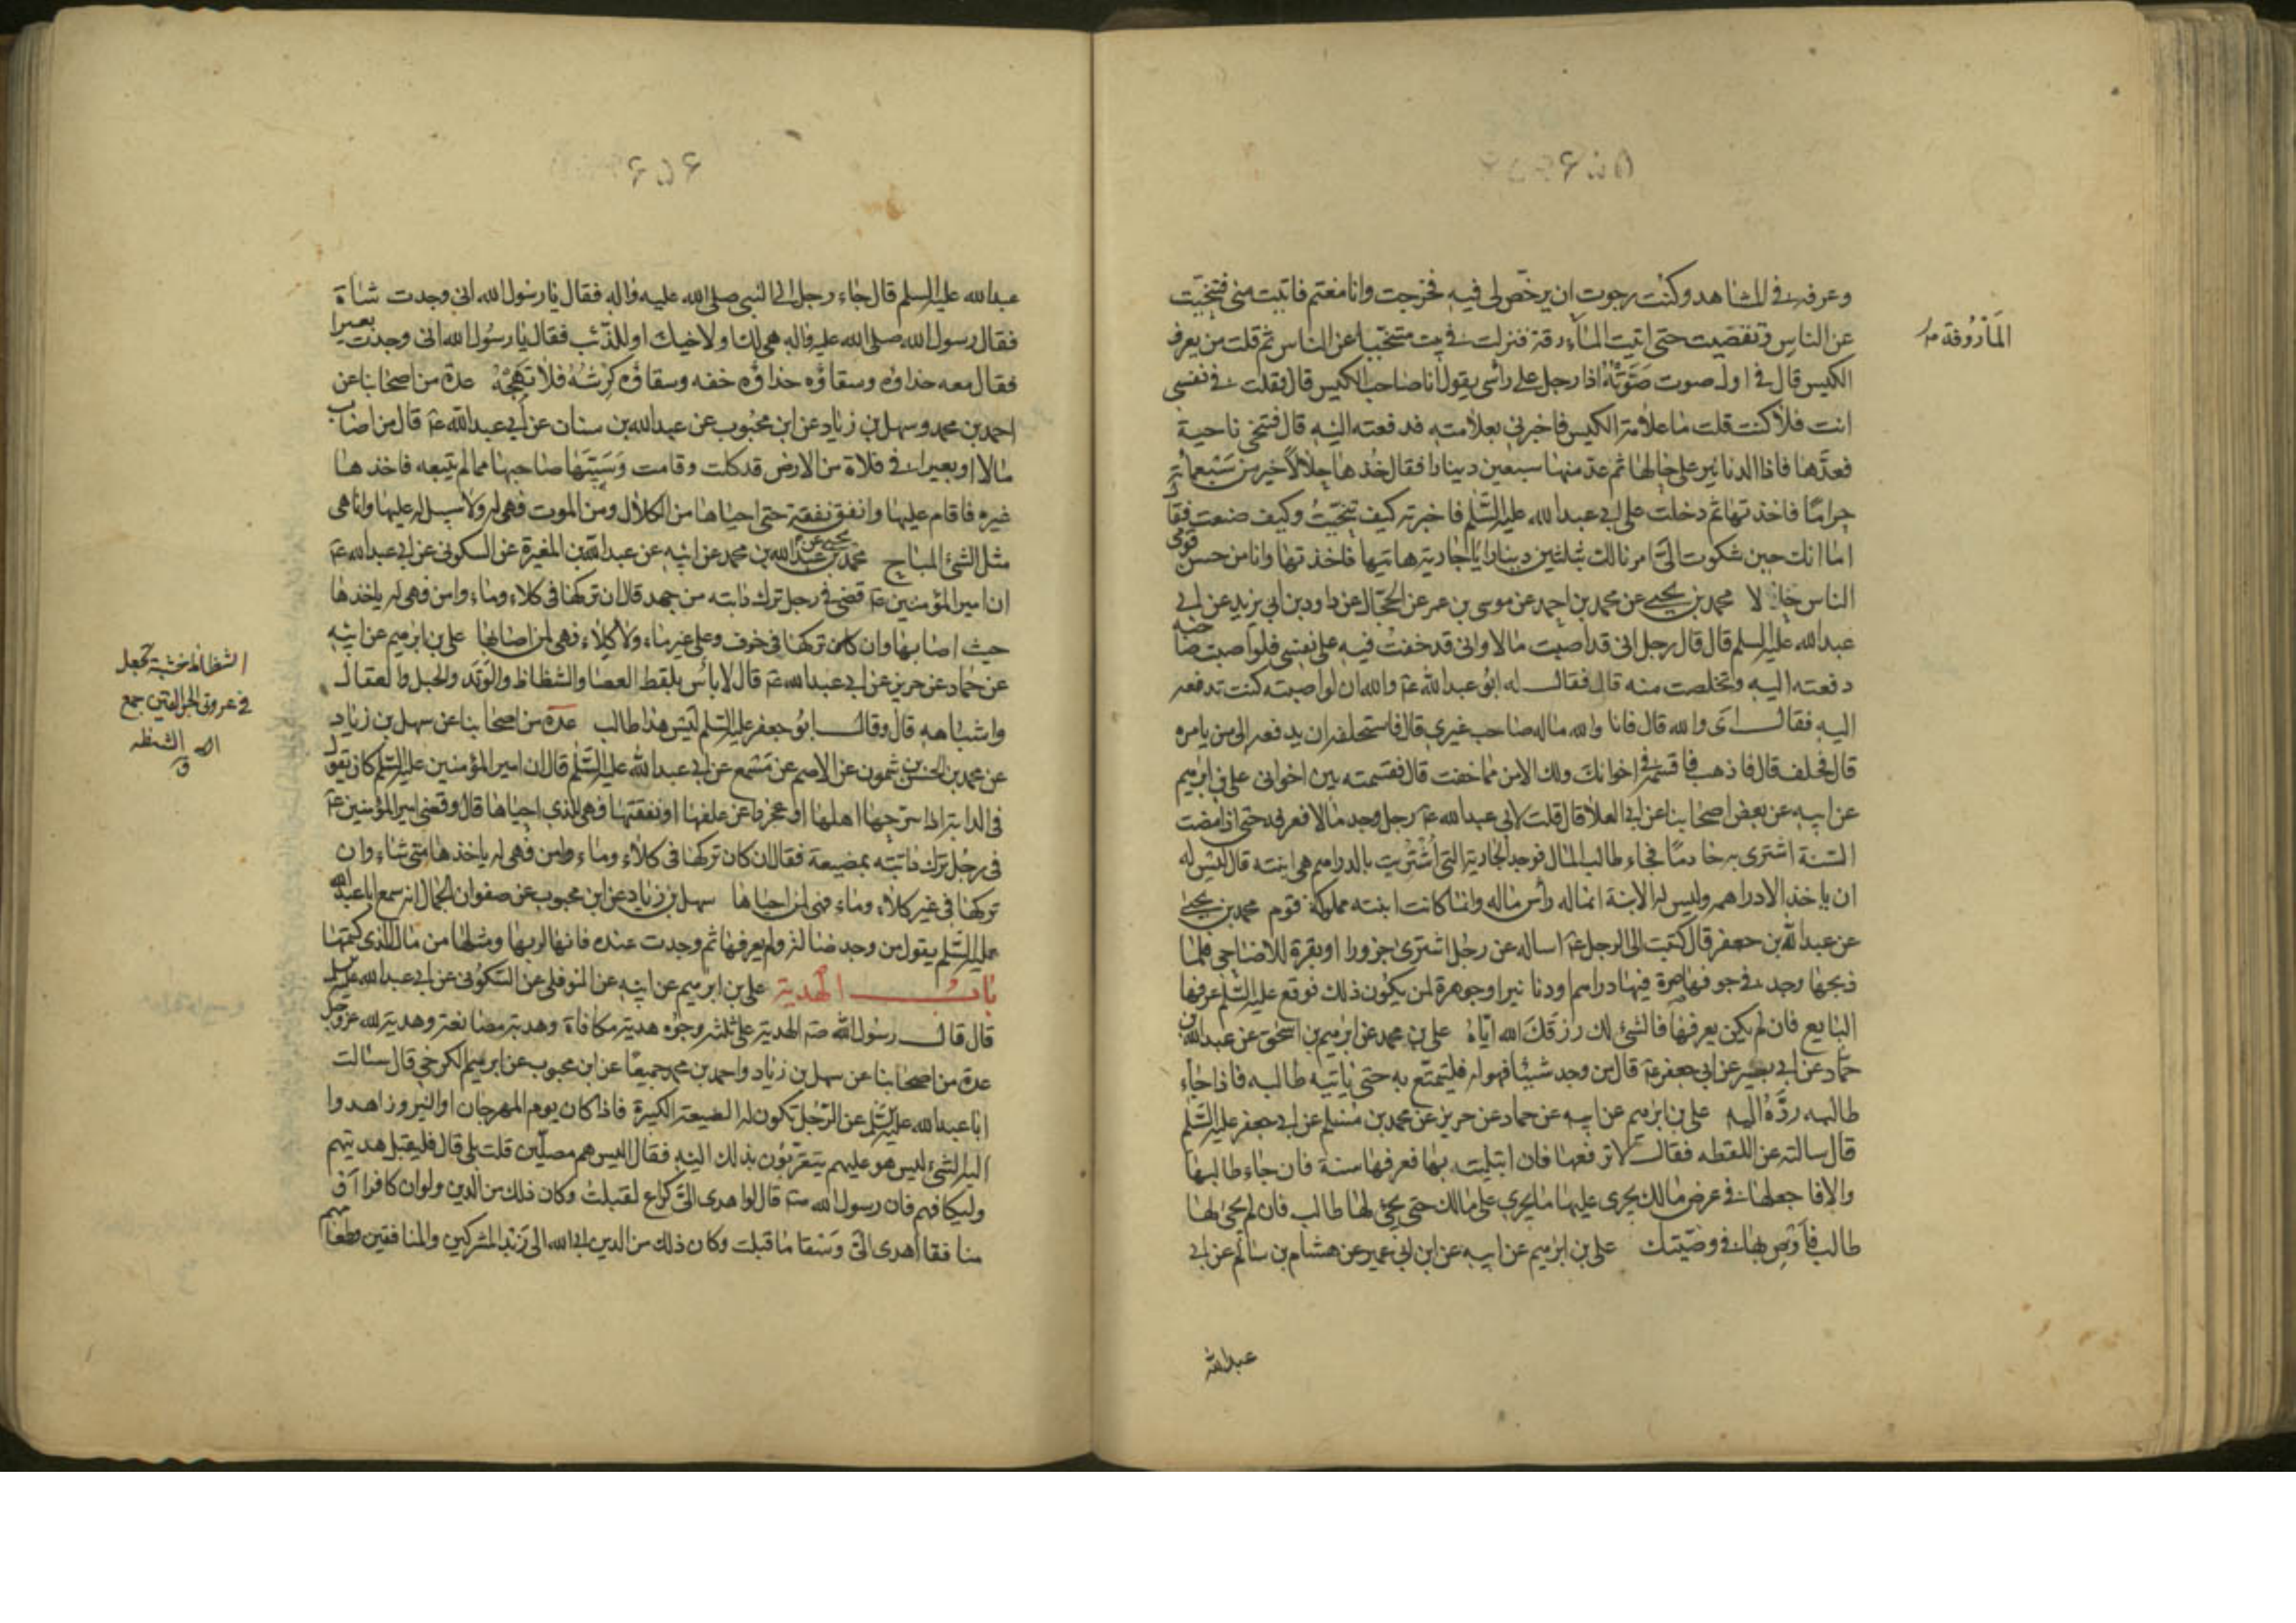 ۶۵۵
وعرفه في المشاهد وكنت رجوت ان يرخص لي فيه فخرجت وانا مغتم فاتيت منى فتنحيت
عن الناس وتقصيت حتى اتيت الماء رقة فنزلت في بيت متنحيا عن الناس ثم قلت من يعرف
الكيس قال في اول صوت صَوَّتُّهُ اذا رجل على رأسي يقول انا صاحب الكيس قال فقلت في نفسي
انت فلا كنت قلت ما علامة الكيس فاخبرني بعلامته فدفعته اليه قال فتنحى ناحية
فعدّها فاذا الدنانير على حالها ثم عدّ منها سبعين دينارا فقال خُذها حلالاً خير من سَبْعمائة
حراما فاخذتها ثم دخلت على ابي عبد الله عليه السّلم فاخبرته كيف تنحّيتُ وكيف صنعت فقال
اما انك حين شكوت اليّ امرنا لك بثلثين دينارا يا جارية هاتيها فاخذتها وانا من حسن قومي
الناس حالا محمد بن يحيى عن محمد بن احمد عن موسى بن عمر عن الحجّال عن داود بن ابي يزيد عن ابي
عبد الله عليه السلم قال قال رجل انى قد اصبت مالا وانى قد خفت فيه على نفسي فلو اصبت صاحبه
دفعته اليه وتخلصت منه قال فقال له ابو عبد الله عۤ والله ان لو اصبته كنت تدفعه
اليه فقال اى والله قال فانا والله ماله صاحب غيري قال فاستحلفه ان يدفعه الى من يامره
قال فحلف قال فاذهب فاقسمه في اخوانك ولك الامن مما خفت قال فقسمته بين اخوانى على بن ابرهيم
عن ابيه عن بعض اصحابنا عن ابى العلا قال قلت لابى عبد الله عۤ رجل وجد مالا فعرفه حتى اذا مضت
السّنة اشترى به خادمًا فجاء طالب المال فوجد الجارية التي اُشْتُرِيت بالدراهم هي ابنته قال ليس له
ان ياخذ الا دراهمه وليس له الابنة انما له رأس ماله وانما كانت ابنته مملوكة قوم محمد بن يحيى
عن عبد الله بن جعفر قال كتبت الى الرجل عۤ اساله عن رجل اشترى جزورا او بقرة للاضاحي فلما
ذبحها وجد في جوفها صرة فيها دراهم او دنانير او جوهرة لمن يكون ذلك فوقع عليه السّلم عرفها
البايع فان لم يكن يعرفها فالشئ لك رزقَكَ الله ايّاهُ على بن محمد عن ابرهيم بن اسحق عن عبد الله بن
حمّاد عن ابي بصير عن ابي جعفر عۤ قال من وجد شيئا فهو له فليتمتّع به حتى ياتيه طالبه فاذا جاء
طالبه ردّهُ اليه على بن ابرهيم عن ابيه عن حماد عن حريز عن محمد بن مُسْلم عن ابي جعفر عليه السّلم
قال سالته عن اللقطه فقال لا ترفعها فان ابتليت بها فعرفها سنة فان جاء طالبها
والا فاجعلها في عرض مالك يجرى عليها ما يجرى على مالك حتى يجئ لها طالب فان لم يجئ لها
طالب فأوص بها في وصيّتك على بن ابرهيم عن ابيه عن ابن ابي عمير عن هشام بن سالم عن ابي
عبد الله
المأذوفة
۶۵۶
عبد الله عليه السلم قال جاء رجل الى النبي صلى الله عليه واله فقال يا رسول الله انى وجدت شاة
فقال رسول الله صلى الله عليه واله هي لك او لاخيك او للذّئب فقال يا رسُول الله انى وجدت بعيرا
فقال معه حذاؤه وسقاؤه حذاؤه خفه وسقاؤه كرشهُ فلا تهجْهُ عدة من اصحابنا عن
احمد بن محمد وسهل بن زياد عن ابن محبوب عن عبد الله بن سنان عن ابي عبد الله عۤ قال من اصاب
مالا او بعيرا في فلاة من الارض قد كلت وقامت وَسَيَّبَها صاحبها مما لم يتبعه فاخذها
غيره فاقام عليها وانفق نفقة حتى احياها من الكلال ومن الموت فهى له ولا سبيل له عليها وانما هي
مثل الشئ المباح محمد بن يحيى عن عبد الله بن محمد عن ابيه عن عبد الله بن المغيرة عن السكونى عن ابي عبد الله عۤ
ان امير المؤمنين عۤ قضى في رجل ترك دابته من جهد قال ان تركها في كلاء وماء وامن فهي له ياخذها
حيث اصابها وان كان تركها في خوف وعلى غير ماء ولا كلاء فهي لمن اصابها على بن ابرهيم عن ابيه
عن حماد عن حريز عن ابي عبد الله عۤ قال لا بأس بلقط العصا والشظاظ والوَتَد والحبل والعقال
واشباهه قال وقال ابو جعفر عليه السّلم ليْسَ لهذا طالب عدة من اصحابنا عن سهل بن زياد
عن محمد بن الحسن بن شمون عن الاصم عن مسْمع عن ابي عبد الله عليه السّلم قال ان امير المؤمنين عليه السّلم كان يقول
في الدابة اذا سرّحها اهلها او عجزوا عن علفها او نفقتها فهي للذي احياها قال وقضى امير المؤمنين عۤ
في رجُل ترك دابته بمضيعة فقال ان كان تركها في كلاء وماء وامن فهي له ياخذها متى شاء وان
تركها في غير كلاء وماء فهي لمن احياها سهل بن زياد عن ابن محبوب عن صفوان الجمال انه سمع ابا عبد الله
عليه السّلم يقول من وجد ضالة فلم يعرفها ثم وجدت عنده فانها لربها ومثلها من مال الذى كتمها
باب الهدية على بن ابرهيم عن ابيه عن النوفلى عن السّكُونى عن ابي عبد الله عليه السلم
قال قال رسول الله صۤ الهدية على ثلثة وجُوه هدية مكافاة وهدية مصانعة وهدية لله عزّ وجل
عدة من اصحابنا عن سهل بن زياد واحمد بن محمد جميعًا عن ابن محبوب عن ابرهيم الكرخي قال سالت
ابا عبد الله عليه السّلم عن الرّجُل تكون له الضيعة الكبيرة فاذا كان يوم المهرجان او النيروز اهدوا
اليه الشئ ليس هو عليهم يتقرّبُون بذلك اليه فقال اليس هم مصلّين قلت بلى قال فليقبل هديتهم
وليكافهم فان رسول الله صۤ قال لو اهدى الىّ كراع لقبلت وكان ذلك من الدين ولو ان كافرا او
منافقا اهدى الىّ وَسْقا ما قبلت وكان ذلك من الدين ابى الله لى زَبْد المشركين والمنافقين وطعامهم
الشظاظ خشبة تجعل
في عروتى الجوالقين جمع
الاشظه
ق